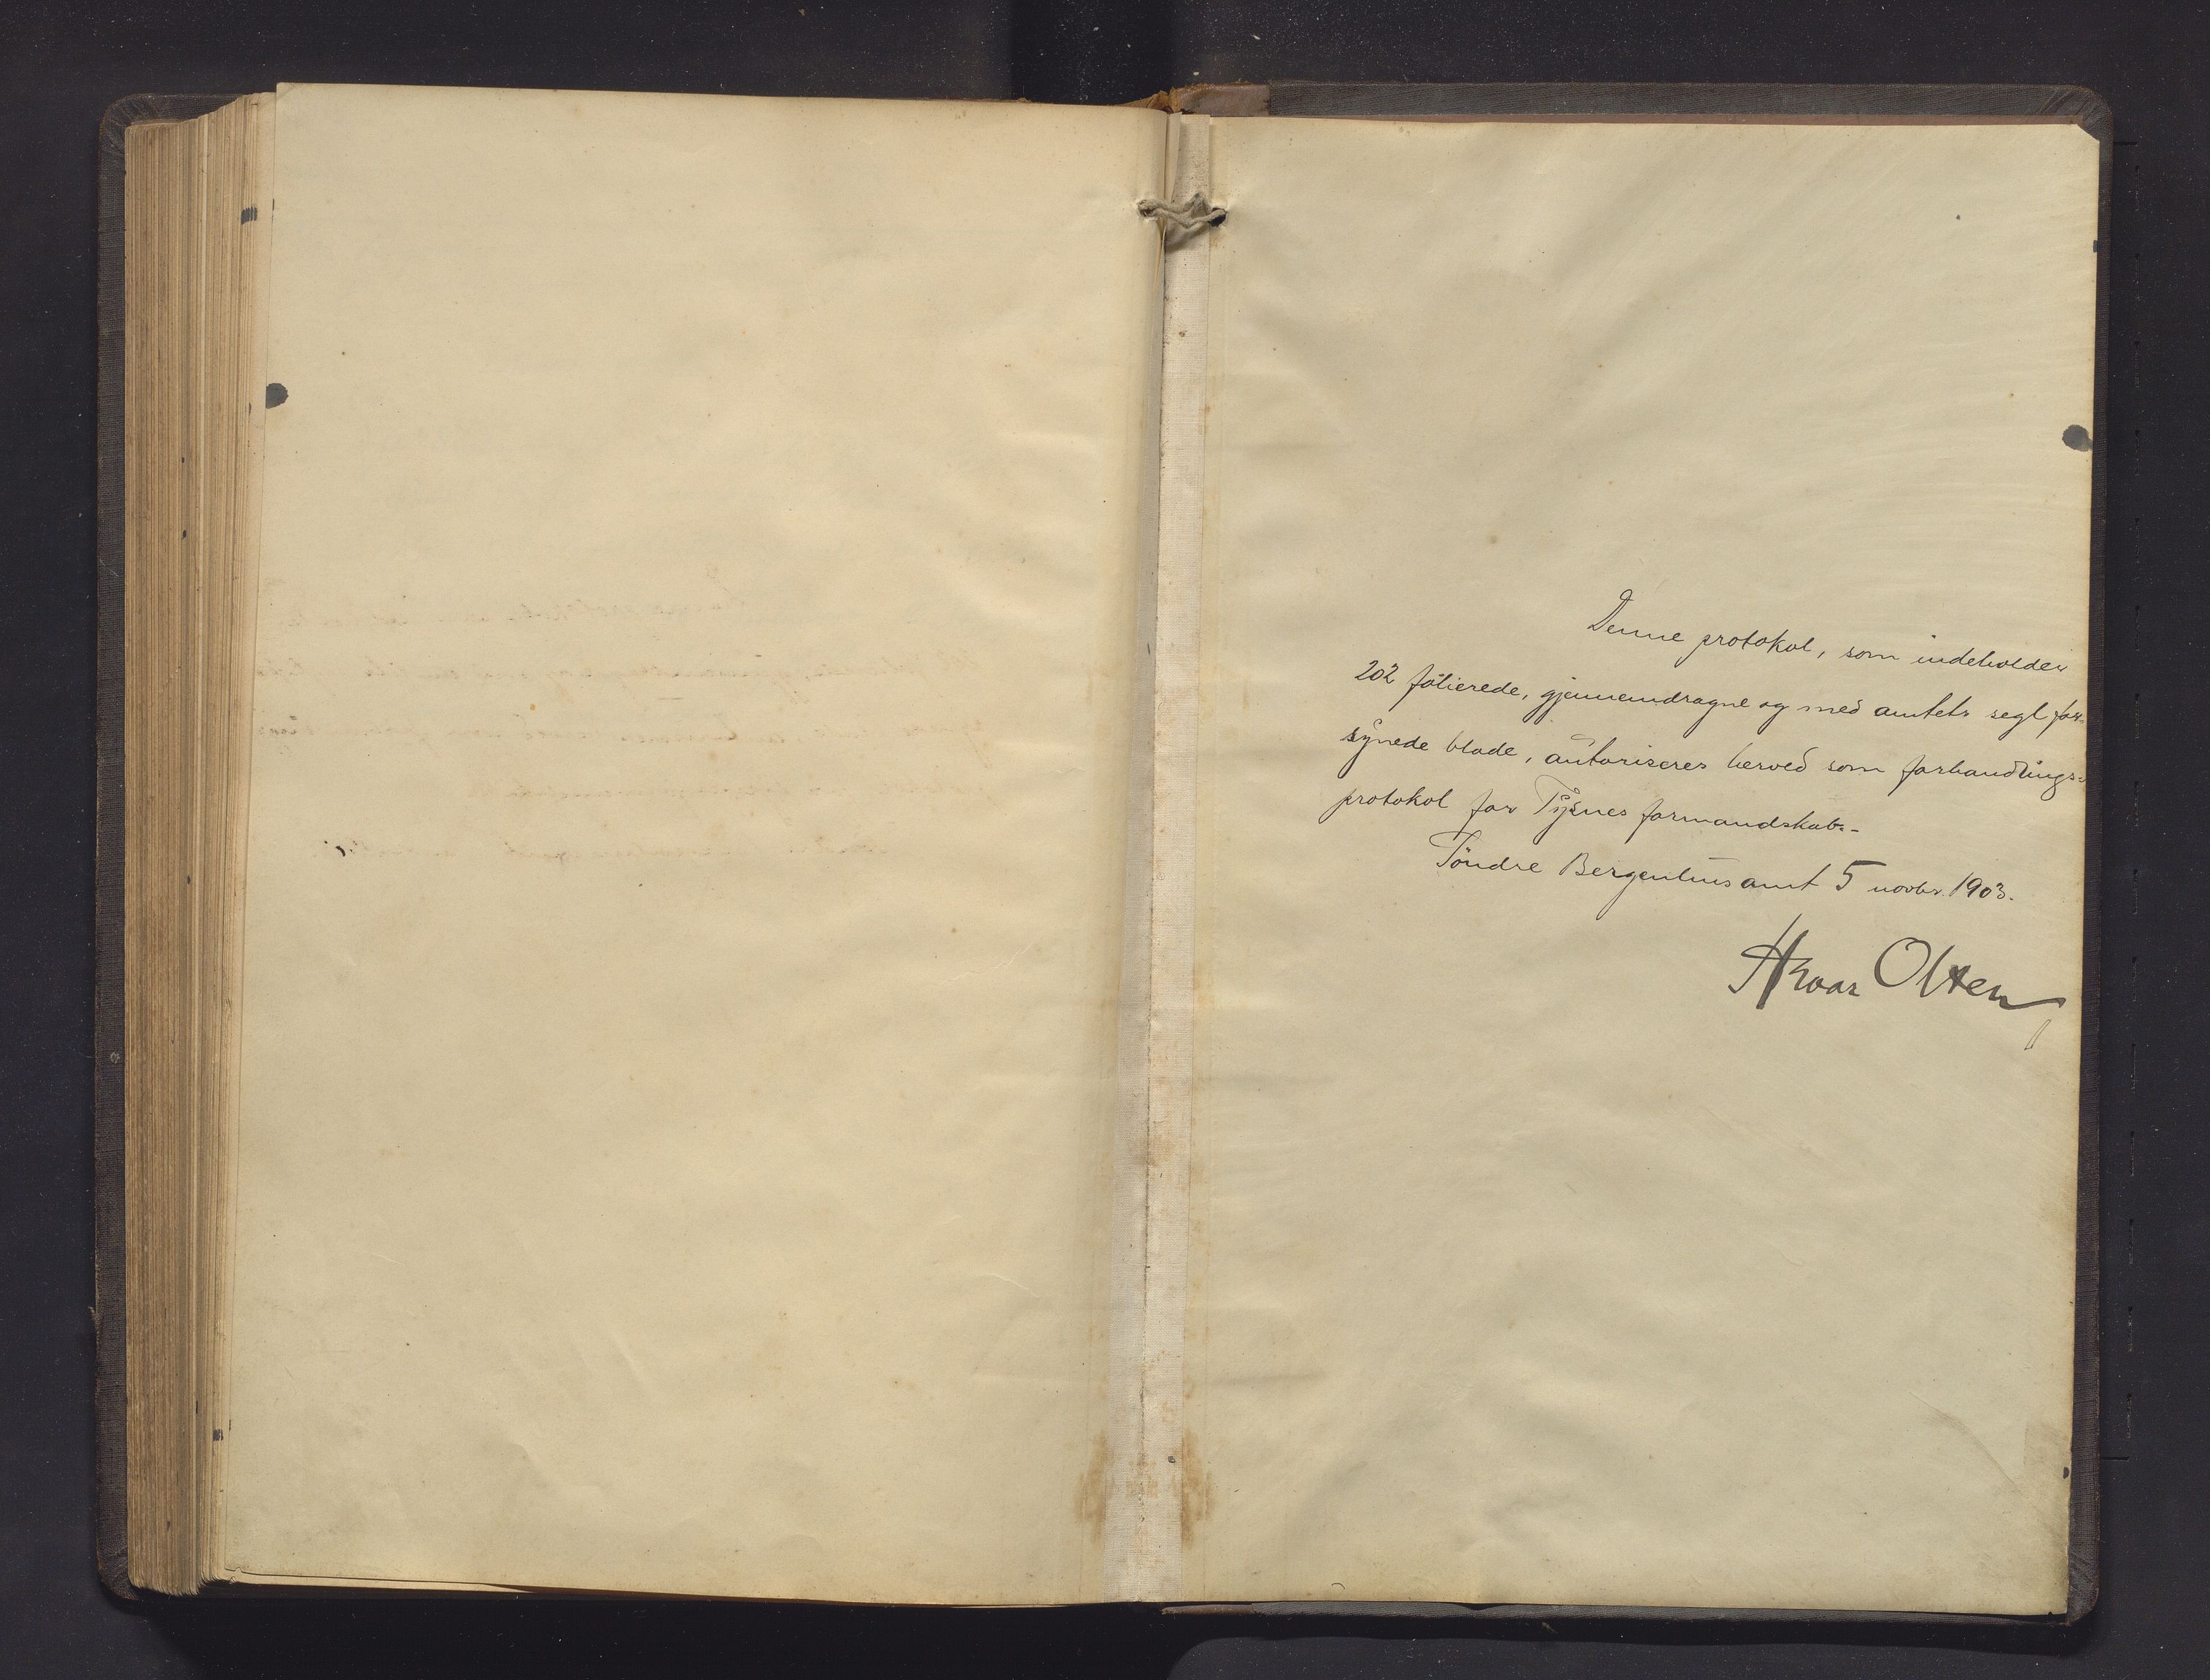 Denne protokol, som indeholder
202 folierede, gjennemdragne og med amtets segl for-
synede blade, autoriseres herved som forhandlings-
protokol for Tysnes formandskab.-
Søndre Bergenhus amt 5 novbr. 1903.
Hroar Olsen